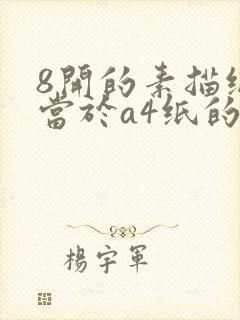 8開的素描紙
當於a4紙的
楊宇軍